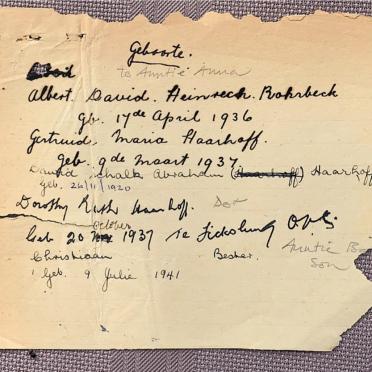 Geboorte.
to Auntie Anna
Albert. David. Heinrech. Rohrbeck
gb. 17de April 1936
Gertruid. Maria Haarhoff.
geb. 9de Maart 1937.
David Schalk Abraham (Haarhoff) Haarhoff
geb. 26/11/1920
Dorothy Ruth Haarhoff. Dot
October
Geb 20 1937 Te Ficksburg O.V.S.
Christiaan Bester. Auntie
Son
Geb. 9 Julie 1941